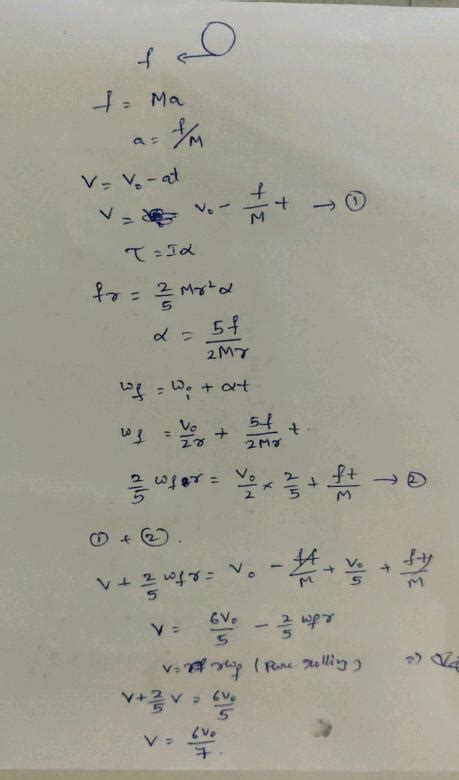 f ←
f = Ma
a = f/M
V = V₀ - at
V = V₀ - f/M t → ①
τ = Iα
fr = 2/5 Mr²α
α = 5f/2Mr
ωf = ωi + αt
ωf = V₀/2r + 5f/2Mr t.
2/5 ωf r = V₀/2 × 2/5 + ft/M → ②
① + ②.
V + 2/5 ωf r = V₀ - ft/M + V₀/5 + ft/M
V = 6V₀/5 - 2/5 ωf r
V = rωf (Pure rolling) ⇒
V + 2/5 V = 6V₀/5
V = 6V₀/7.